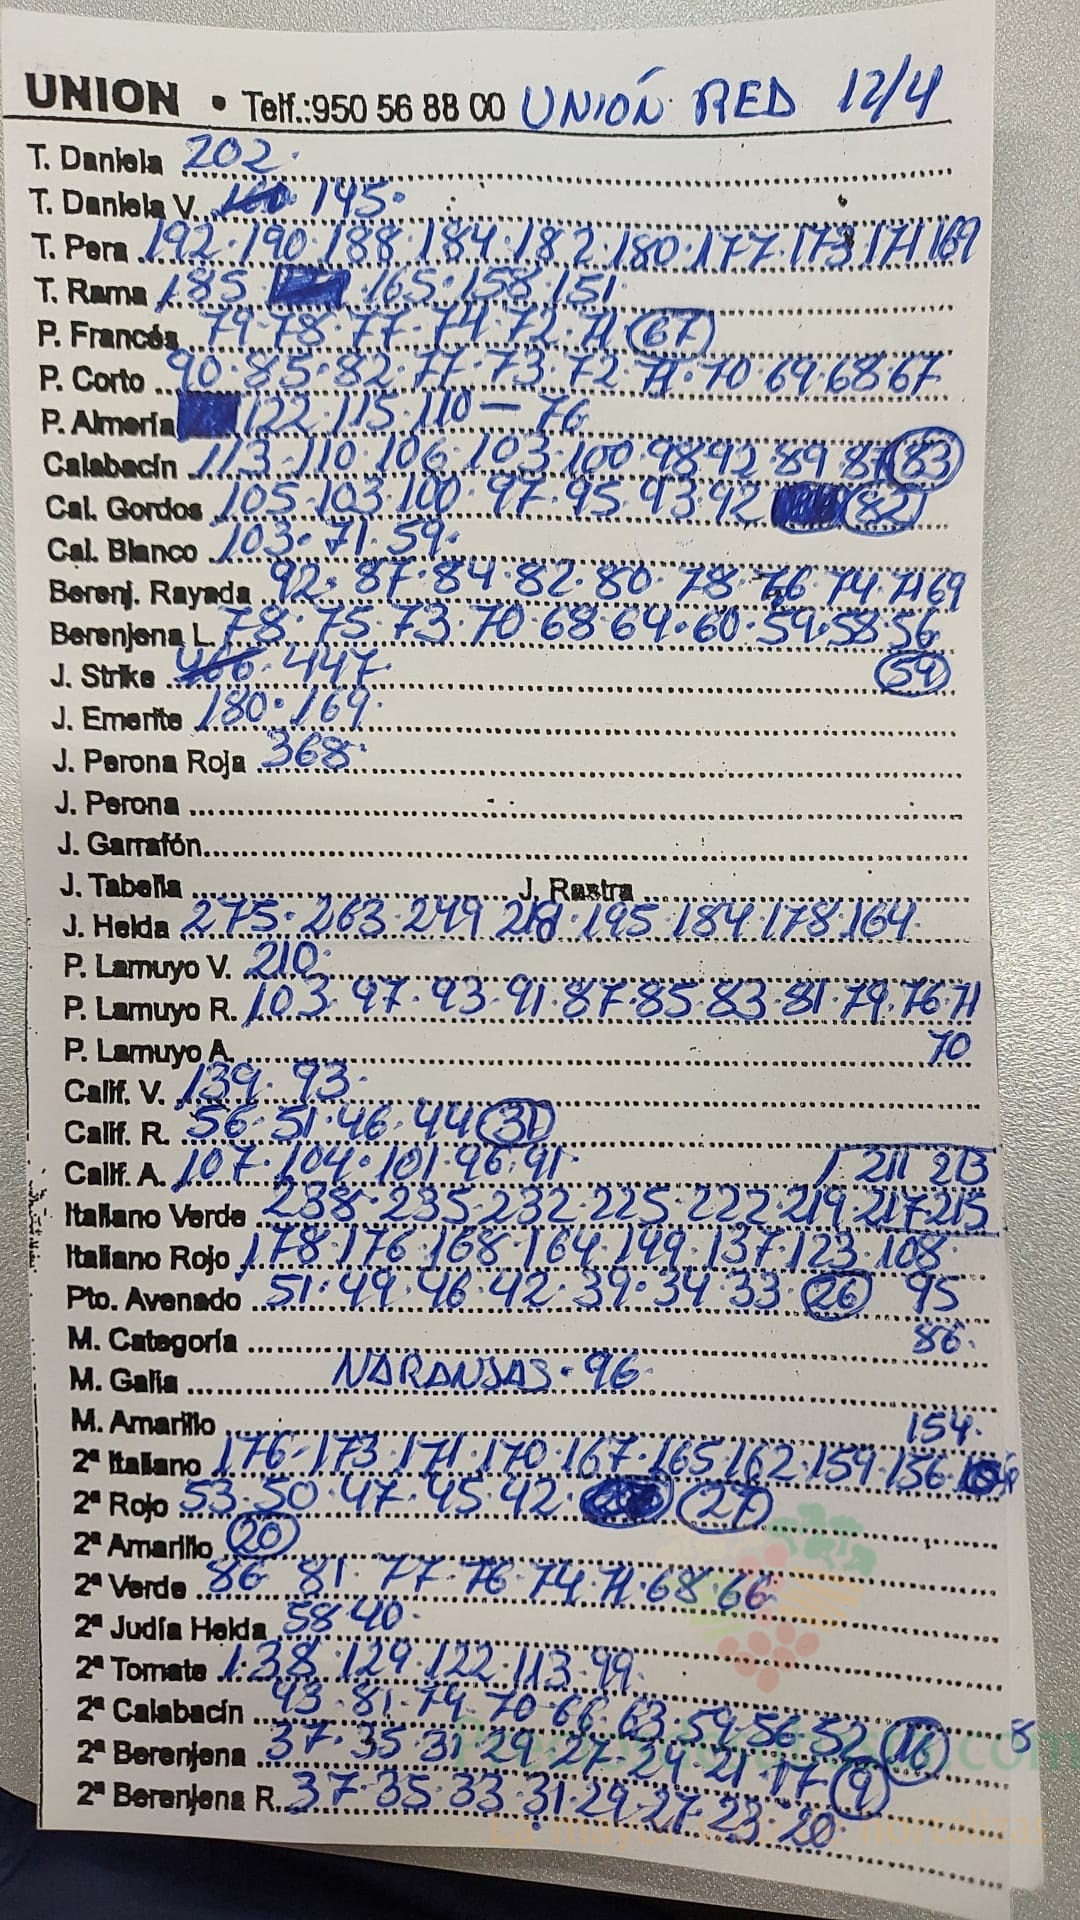 UNION • Telf.:950 56 88 00 UNIÓN RED 12/4
T. Daniela 202.
T. Daniela V. 145.
T. Pera 192.190.188.184.182.180.177.173.171 169
T. Rama 185. 165.158.151.
P. Francés 79.78.77.74.72.71 67
P. Corto 90.85.82.77.73.72.71.70.69.68.67
P. Almería 122.115.110 — 76
Calabacín 113.110.106.103.100.98.92 89 87 83
Cal. Gordos 105.103.100.97.95.93.92 82
Cal. Blanco 103.71.59.
Berenj. Rayada 92.87.84.82.80.78.76.74.71 69
Berenjena L. 78.75.73.70.68.64.60.59.58.56
J. Strike 466 447. 54
J. Emerite 180.169.
J. Perona Roja 368.
J. Perona
J. Garrafón
J. Tabella J. Rastra
J. Helda 275.263.249 218.195.184.178.164.
P. Lamuyo V. 210.
P. Lamuyo R. 103.97.93.91.87.85.83.81.79.76.71
P. Lamuyo A. 70
Calif. V. 139.93.
Calif. R. 56.51.46.44 31
Calif. A. 107.104.101.96.91. 211 213
Italiano Verde 238.235.232.225.222.219.217.215
Italiano Rojo 178.176.168.164.149.137.123.108.
Pto. Avenado 51.49.46.42.39.34.33. 26 95
M. Categoría 86.
M. Galia NARANJAS.96.
M. Amarillo 154.
2ª Italiano 176.173.171.170.167.165.162.159.156.
2ª Rojo 53.50.47.45.42. 27
2ª Amarillo 20
2ª Verde 86 81.77.76.74.71.68.66
2ª Judía Helda 58.40.
2ª Tomate 138.129.122.113.99.
2ª Calabacín 93.81.74.70.66.63.59.56.52 16 8
2ª Berenjena 37.35.31.29.27.24.21.17 9
2ª Berenjena R. 37.35.33.31.29.27.23.20